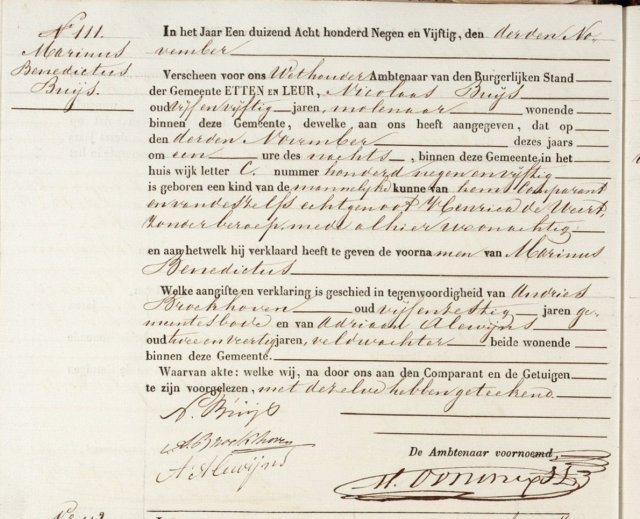 No 111.
Marinus
Benedictus
Buijs.
In het Jaar Een duizend Acht honderd Negen en Vijftig, den derden No-
vember
Verscheen voor ons Wethouder Ambtenaar van den Burgerlijken Stand
der Gemeente ETTEN EN LEUR, Nicolaas Buijs
oud vijf en vijftig jaren, molenaar wonende
binnen deze Gemeente, dewelke aan ons heeft aangegeven, dat op
den derden November dezes jaars
om een ure des nachts, binnen deze Gemeente in het
huis wijk letter C. nummer honderd negen en vijftig
is geboren een kind van de mannelijke kunne van hem Comparant
en van deszelfs echtgenoot Henrica de Weert,
zonder beroep, mede alhier woonachtig
en aan hetwelk hij verklaard heeft te geven de voornamen van Marinus
Benedictus
Welke aangifte en verklaring is geschied in tegenwoordigheid van Andries
Broekhoven oud vijf en zestig jaren ge-
meentebode en van Adriaan Alewijns
oud twee en veertig jaren, veldwachter beide wonende
binnen deze Gemeente.
Waarvan akte: welke wij, na door ons aan den Comparant en de Getuigen
te zijn voorgelezen, met dezelve hebben geteekend.
N. Buijs
A. Broekhoven
A. Alewijns
De Ambtenaar voornoemd,
In het